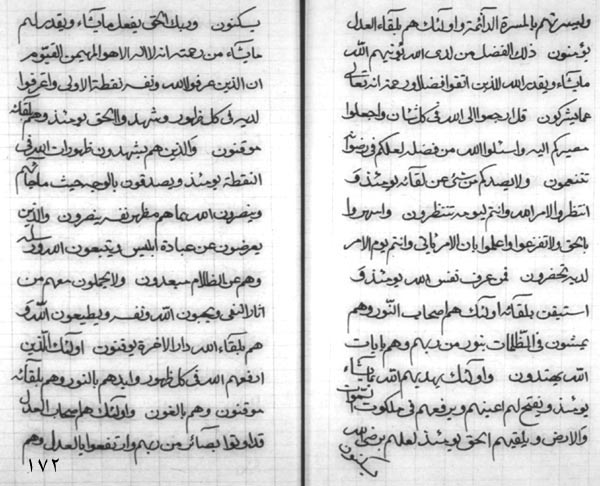 وليسرنهم بالمسرة الدائمة واولئك هم بلقاء العدل
يؤمنون ذلك الفضل من لدى الله يؤتيهم الله
مايشاء ويقدر الله للذين اتقوا فضلا ورحمة انه تعالى
عما يشركون قل ارجعوا الى الله في كل شأن واجعلوا
مصيركم اليه واسئلوا الله من فضله لعلكم في رضوانه
تتنعمون ولا يصدكم من شئ عن لقائه يومئذ و
انتظروا الامر الله وانتم ليومه تنتظرون واسهروا
بالحق ولا تفزعوا واعلموا بان الامر يأتي وانتم يوم الامر
لديه تحضرون فمن عرف نفس الله يومئذ و
استبقن بلقائه اولئك هم اصحاب النور وهم
يمشون في الظلمات بنور من ربهم وهم بايات
الله يهتدون واولئك يهديهم الله بمايشاء
يومئذ ويفتح لهم اعينهم ويرفعهم في ملكوت السموات
والارض ويلقيهم الحق يومئذ لعلهم برضى الله
يسكنون
يسكنون وربك الحق يفعل مايشاء ويقدر لهم
مايشاء من رحمته انه لا اله الا هو المهيمن القيوم
ان الذين عرفوا الله ونفسه نقطة الاولى واعترفوا
لديه في كل ظهور وشهدوا بالحق يومئذ وهم بلقائه
موقنون والذين هم يشهدون ظهورات الله في
النقطة يومئذ ويصدقون بالوجه حيث ماجائهم
وينصرون الله بما هم مظهر نفسه ينصرون والذين
يعرضون عن عبادة ابليس ويتبعون الله ورسله
وهم عن الظلام مبعدون ولا يجعلون معهم من
اثار النفي ويحبون الله ونفسه ويطيعون الله و
هم بلقاء الله دار الاخرة يوقنون اولئك الذين
ارفعهم الله في كل ظهور وايدهم بالنور وهم بلقائه
موقنون وهم بالغون واولئك هم اصحاب العدل
قد اوتوا بصائر من ربهم وارتفعوا بالعدل وهم
١٧٢